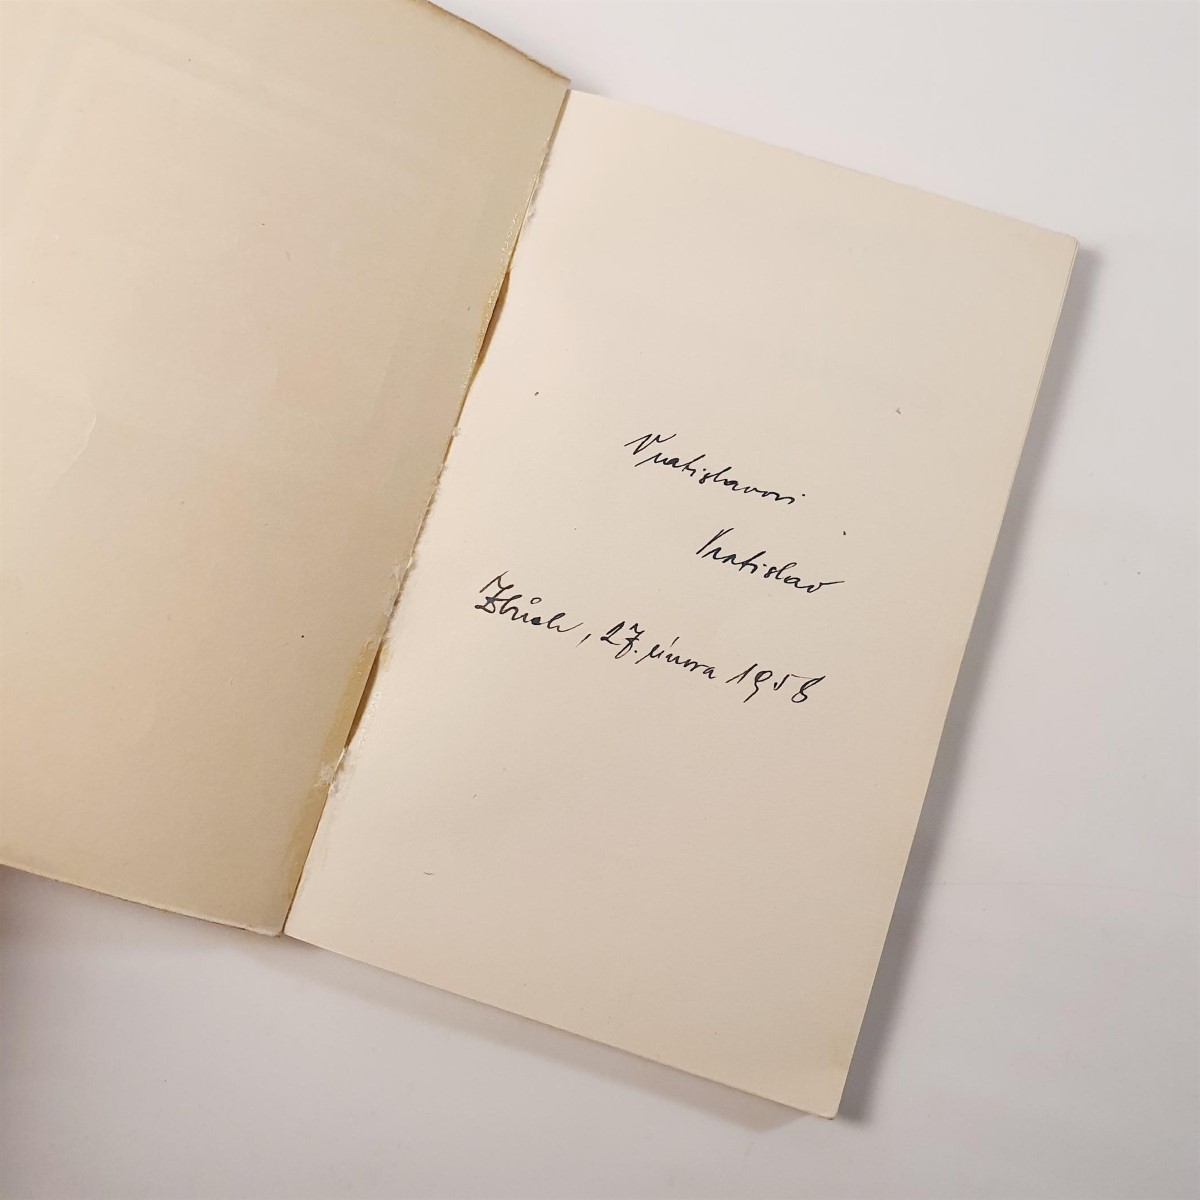 Vratislavovi
Vratislav
Zbůch, 27. února 1958